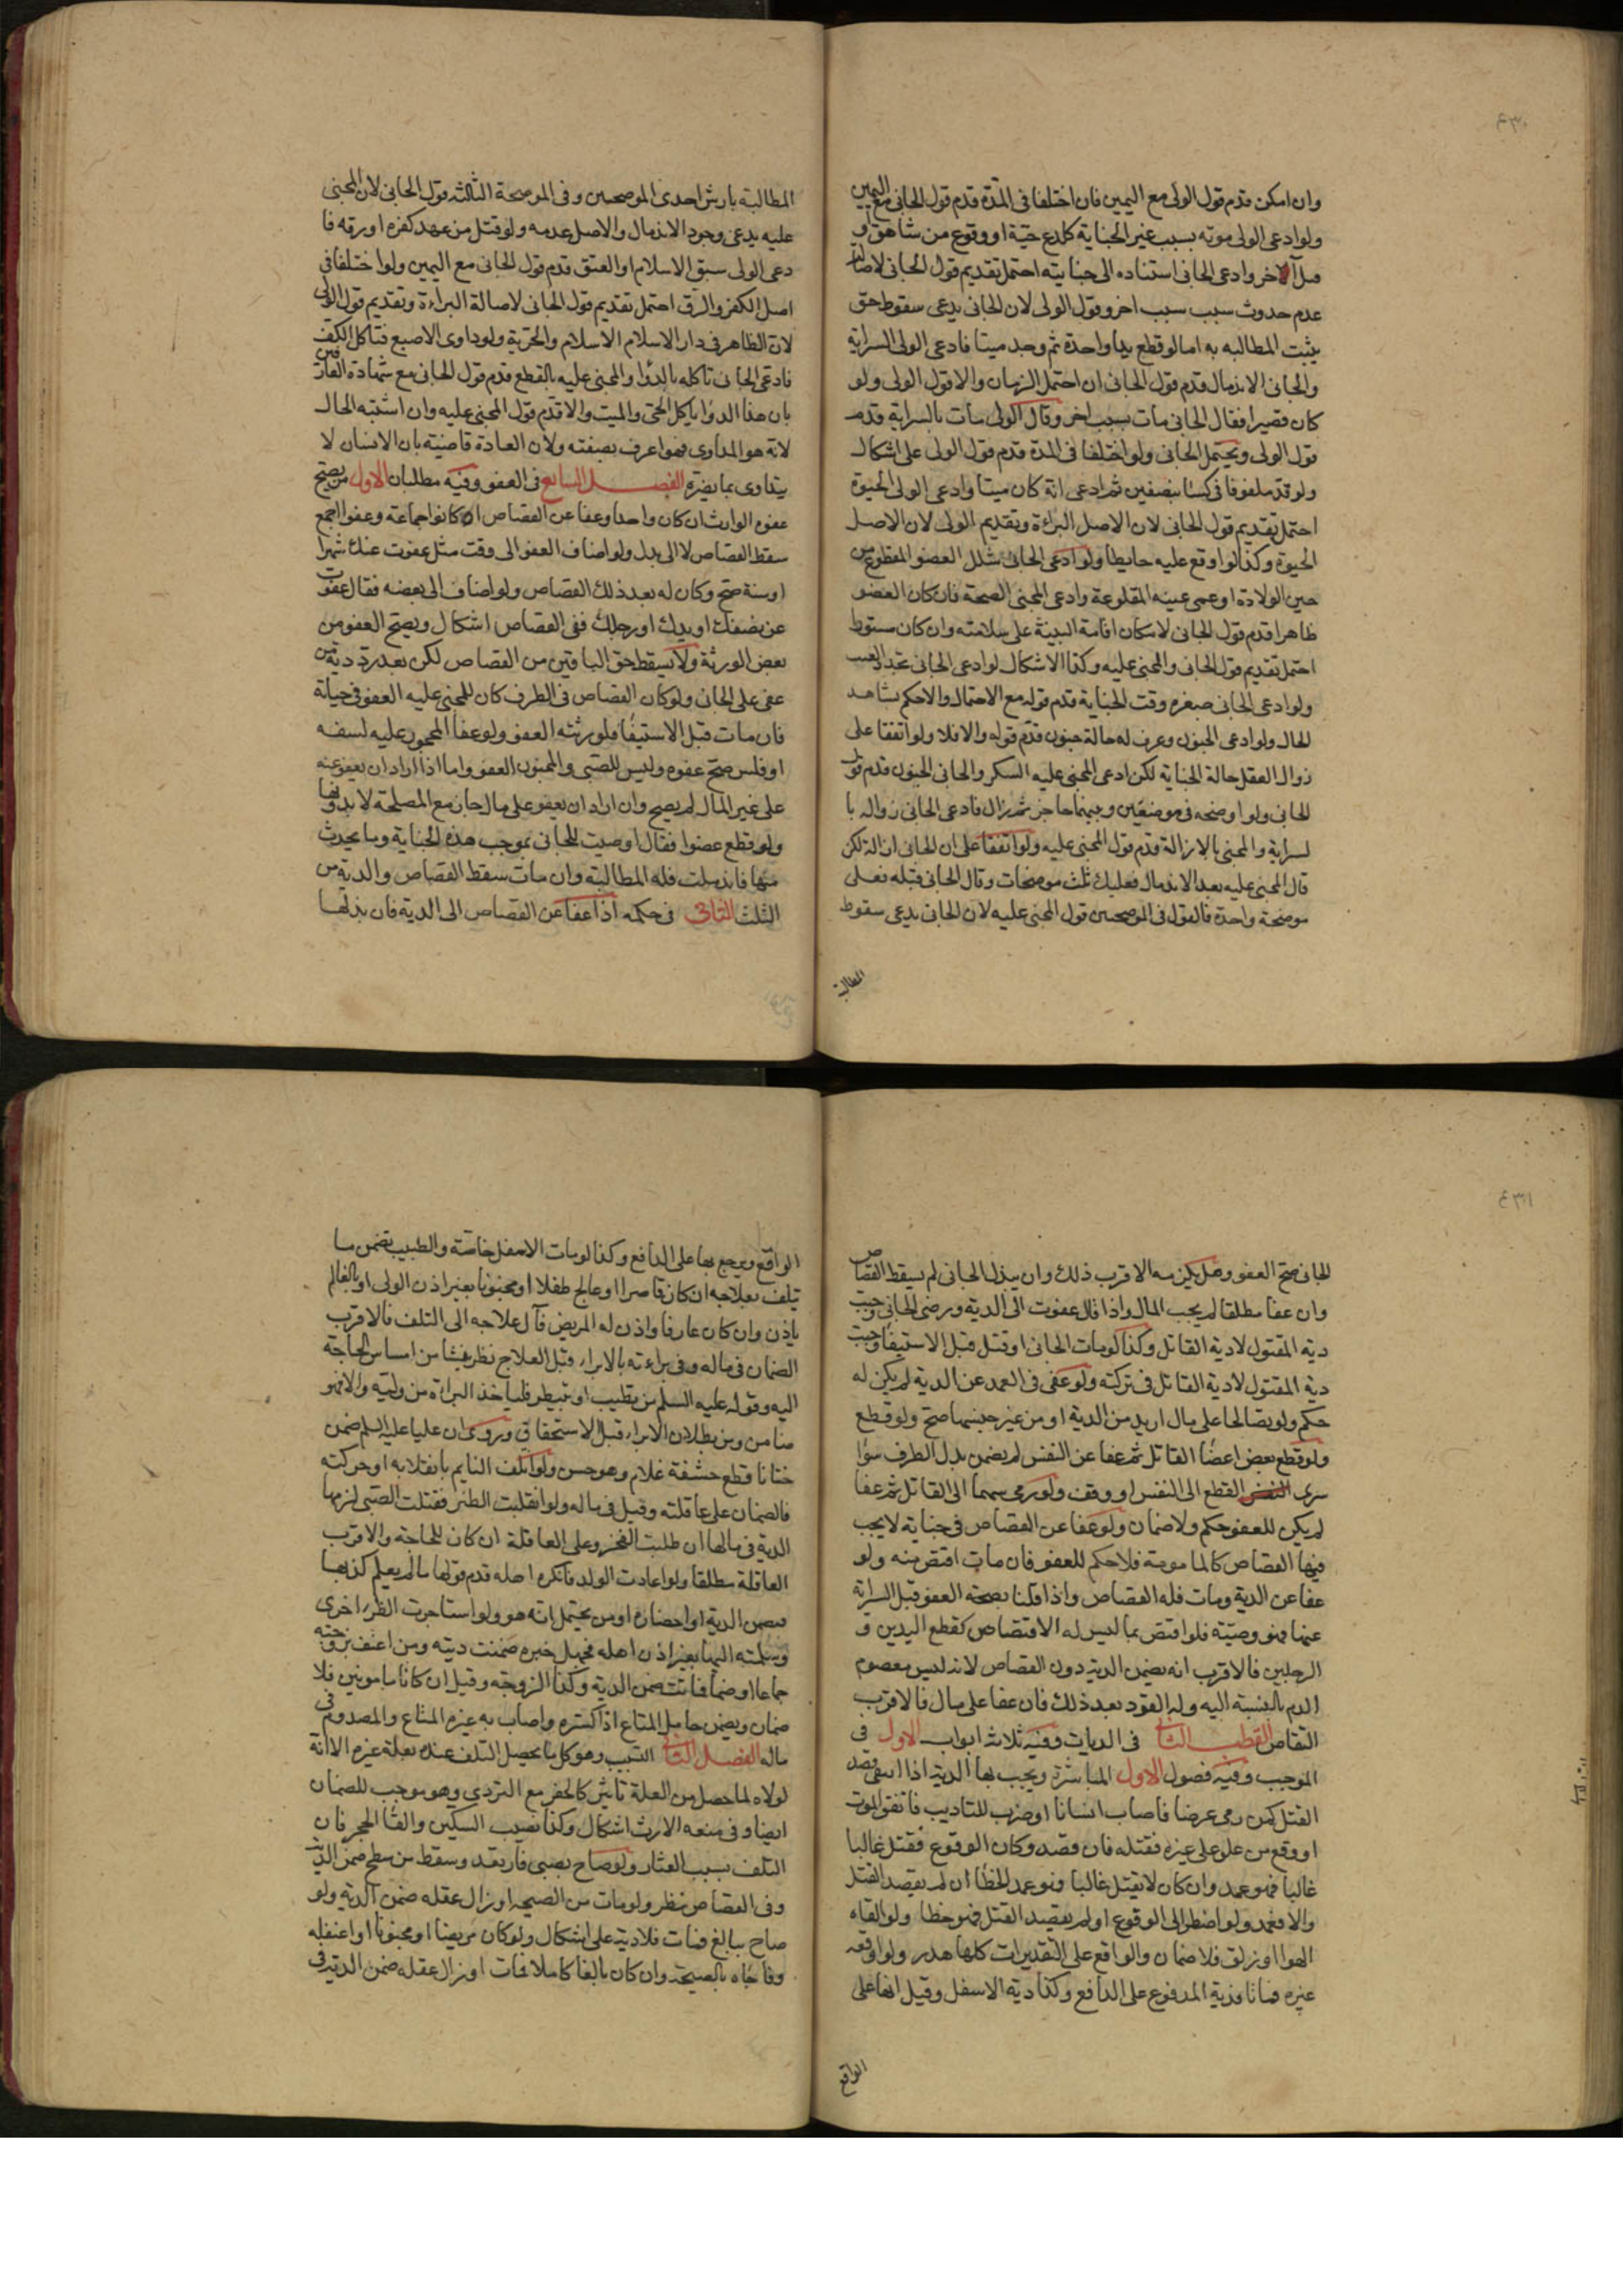 ٤٣٠
وان امكن قدم قول الولى مع اليمين فان اختلفا فى المدة قدم قول الجانى مع اليمين
ولو ادعى الولى موته بسبب غير الجناية كلدغ حية او وقوع من شاهق او
الاخر وادعى الجانى استناده الى جنايته احتمل تقديم قول الجانى لاصالة
عدم حدوث سبب سبب اخر وقول الولى لان الجانى يدعى سقوط حق
يثبت المطالبه به اما لو قطع يدا واحدة ثم وجد ميتا فادعى الولى السراية
والجانى الاندمال قدم قول الجانى ان احتمل الزمان والا قول الولى ولو
كان قصيرا فقال الجانى مات بسبب اخر وقال الولى مات بالسراية قدم
قول الولى ويحتمل الجانى ولو اختلفا فى المدة قدم قول الولى على اشكال
ولو قد ملفوفا فى كساء بنصفين ثم ادعى انه كان ميتا وادعى الولى الحيوة
احتمل تقديم قول الجانى لان الاصل البراءة وتقديم الولى لان الاصل
الحيوة وكذا لو اوقع عليه حايطا ولو ادعى الجانى شلل العضو المقطوع من
حين الولادة او عمى عينه المقلوعة وادعى المجنى الصحة فان كان العضو
ظاهرا قدم قول الجانى لامكان اقامة البينة على سلامته وان كان مستورا
احتمل تقديم قول الجانى والمجنى عليه وكذا الاشكال لو ادعى الجانى تجدد العيب
ولو ادعى الجانى صغره وقت الجناية قدم قوله مع الاحتمال والا حكم بشاهد
الحال ولو ادعى الجنون وعرف له حالة جنون قدم قوله والا فلا ولو اتفقا على
زوال العقل حالة الجناية لكن ادعى المجنى عليه السكر والجانى الجنون قدم قول
الجانى ولو اوضحه فى موضعين وبينهما حاجز ثم زال فادعى الجانى زواله با
لسراية والمجنى بالازالة قدم قول المجنى عليه ولو اتفقا على ان الجانى ازاله لكن
قال المجنى عليه بعد الاندمال فعليك ثلث موضحات وقال الجانى قبله فعلى
موضحة واحدة فالقول فى الموضحتين قول المجنى عليه لان الجانى يدعى سقوط
المطالبة
المطالبة بارش احدى الموضحتين وفى الموضحة الثالثه قول الجانى لان المجنى
عليه يدعى وجود الاندمال والاصل عدمه ولو قتل من عهد كفره او رقه فا
دعى الولى سبق الاسلام او العتق قدم قول الجانى مع اليمين ولو اختلفا فى
اصل الكفر والرق احتمل تقديم قول الجانى لاصالة البراءة وتقديم قول الولى
لان الظاهر فى دار الاسلام الاسلام والحرية ولو داوى الاصبع فتاكل الكف
فادعى الجانى تاكله بالدوا والمجنى عليه بالقطع قدم قول الجانى مع شهادة العارفين
بان هذا الدوا ياكل الحى والميت والا قدم قول المجنى عليه وان اشتبه الحال
لانه هو المداوى فهو اعرف بصفته ولان العادة قاضية بان الانسان لا
يتداوى بما يضره الفصل السابع فى العفو وفيه مطلبان الاول من يصح
عفوه الوارث ان كان واحدا وعفا عن القصاص او كانوا جماعة وعفوا اجمع
سقط القصاص لا الى بدل ولو اضاف العفو الى وقت مثل عفوت عنك شهرا
او سنة صح وكان له بعد ذلك القصاص ولو اضاف الى بعضه فقال عفوت
عن نصفك او يدك او رجلك ففى القصاص اشكال ويصح العفو من
بعض الورثة ولا يسقط حق الباقين من القصاص لكن بعد رد دية من
عفى على الجانى ولو كان القصاص فى الطرف كان للمجنى عليه العفو فى حياته
فان مات قبل الاستيفا فلورثته العفو ولو عفا المحجور عليه لسفه
او فلس صح عفوه وليس للصبى والمجنون العفو واما اذا اراد ان يعفو عنه
على غير المال لم يصح وان اراد ان يعفو على مال جاز مع المصلحة لا بدونها
ولو قطع عضوا فقال اوصيت للجانى بموجب هذه الجناية وما يحدث
منها فاندملت فله المطالبة وان مات سقط القصاص والدية من
الثلث الثانى فى حكمه اذا عفا عن القصاص الى الدية فان بذلها
٤٣١
الجانى صح العفو وهل يلزمه الاقرب ذلك وان لم يبذل الجانى لم يسقط القصاص
وان عفا مطلقا لم يجب المال واذا قال عفوت الى الدية ورضى الجانى وجبت
دية المقتول لا دية القاتل وكذا لو مات الجانى او قتل قبل الاستيفا وجبت
دية المقتول لا دية القاتل فى تركته ولو عفى فى العمد عن الدية لم يكن له
حكم ولو تصالحا على مال ازيد من الدية او من غير جنسها صح ولو قطع
ولو قطع بعض اعضا القاتل ثم عفا عن النفس لم يضمن بدل الطرف سوا
سرى القطع الى النفس او وقف ولو رمى سهما الى القاتل ثم عفا
لم يكن للعفو حكم ولا ضمان ولو عفا عن القصاص فى جناية لا يجب
فيها القصاص كالمامومة فلا حكم للعفو فان مات اقتص منه ولو
عفا عن الدية ومات فله القصاص واذا قلنا بصحة العفو قبل السراية
عنها فهو وصيته فلو اقتص بما ليس له الاقتصاص كقطع اليدين و
الرجلين فالاقرب انه يضمن الدية دون القصاص لانه ليس معصوم
الدم بالنسبة اليه وله القود بعد ذلك فان عفا على مال فالاقرب
التقاص القطب الثانى فى الديات وفيه ثلاثة ابواب الاول فى
الموجب وفيه فصول الاول المباشرة ويجب بها الدية اذا انتفى قصد
القتل كمن رمى عرضا فاصاب انسانا او ضرب للتاديب فاتفق الموت
او وقع من علو على غيره فقتله فان قصد وكان الوقوع فقتل غالبا
غالبا فهو عمد وان كان لا يقتل غالبا فهو عمد الخطأ ان لم يقصد القتل
والا فعمد ولو اضطر الى الوقوع او لم يقصد القتل فهو خطا ولو القاه
الهوا او زلق فلا ضمان والواقع على التقديرات كلها هدر ولو اوقعه
غيره فماتا فدية المدفوع على الدافع وكذا دية الاسفل وقيل انها على
الواقع
الواقع ويرجع بها على الدافع وكذا لو مات الاسفل خاصة والطبيب يضمن ما
يتلف بعلاجه ان كان قاصرا او عالج طفلا او مجنونا بغير اذن الولى او بالغا لم
ياذن وان كان عارفا واذن له المريض فآل علاجه الى التلف فالاقرب
الضمان فى ماله وفى براءته بالابراء قبل العلاج نظر ينشا من امساس الحاجة
اليه وقوله عليه السلم من تطبب او تبيطر فلياخذ البراءة من وليه والا فهو
ضامن ومن بطلان الابراء قبل الاستحقاق وروى ان عليا عليه السلم ضمن
ختانا قطع حشفة غلام وهو حسن ولو اتلف النايم بانقلابه او حركته
فالضمان على عاقلته وقيل فى ماله ولو انقلبت الظئر فقتلت الصبى لزمها
الدية فى مالها ان طلبت الفخر وعلى العاقلة ان كان للحاجة والاقرب
العاقلة مطلقا ولو اعادت الولد فانكره اهله قدم قولها ما لم يعلم كذبها
فيضمن الدية او احضاره او من يحتمل انه هو ولو استاجرت الظئر اخرى
وسلمته اليها بغير اذن اهله فجهل خبره ضمنت ديته ومن اعنف بزوجته
جماعا او ضما فماتت ضمن الدية وكذا الزوجة وقيل ان كانا مامونين فلا
ضمان ويضمن حامل المتاع اذا كسره واصاب به غيره المتاع والمصدوم فى
ماله الفصل الثانى التسبيب وهو كل ما يحصل التلف عنده بعلة غيره الا انه
لولاه لما حصل من العلة تاثير كالحفر مع التردى وهو موجب للضمان
ايضا وفى منعه الارث اشكال وكذا نصب السكين والقا الحجر فان
التلف بسبب العثار ولو صاح بصبى فارتعد وسقط من سطح ضمن الدية
وفى القصاص نظر ولو مات من الصيحة او زال عقله ضمن الدية ولو
صاح ببالغ فمات فلا دية على اشكال ولو كان مريضا او مجنونا او اغتفله
وفاجاه بالصيحة وان كان بالغا كاملا فمات او زال عقله ضمن الدية فى